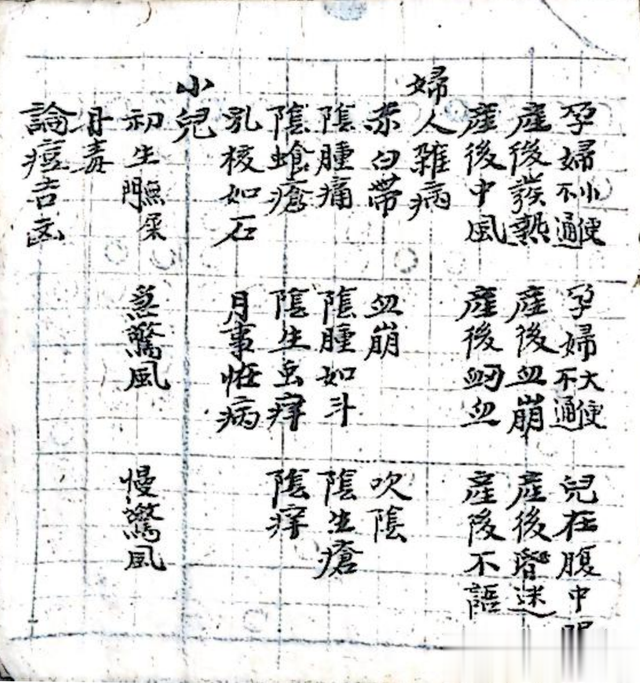 孕婦小便不通 孕婦大便不通 兒在腹中
産後發熱 産後血崩 産後昏迷
産後中風 産後衂血 産後不語
婦人雜病
赤白帶 血崩 吹陰
陰腫痛 陰腫如斗 陰生瘡
陰瘡 陰生虫痒 陰痒
乳核如石 月事怪病
小兒
初生 急驚風 慢驚風
丹毒
論痘吉凶